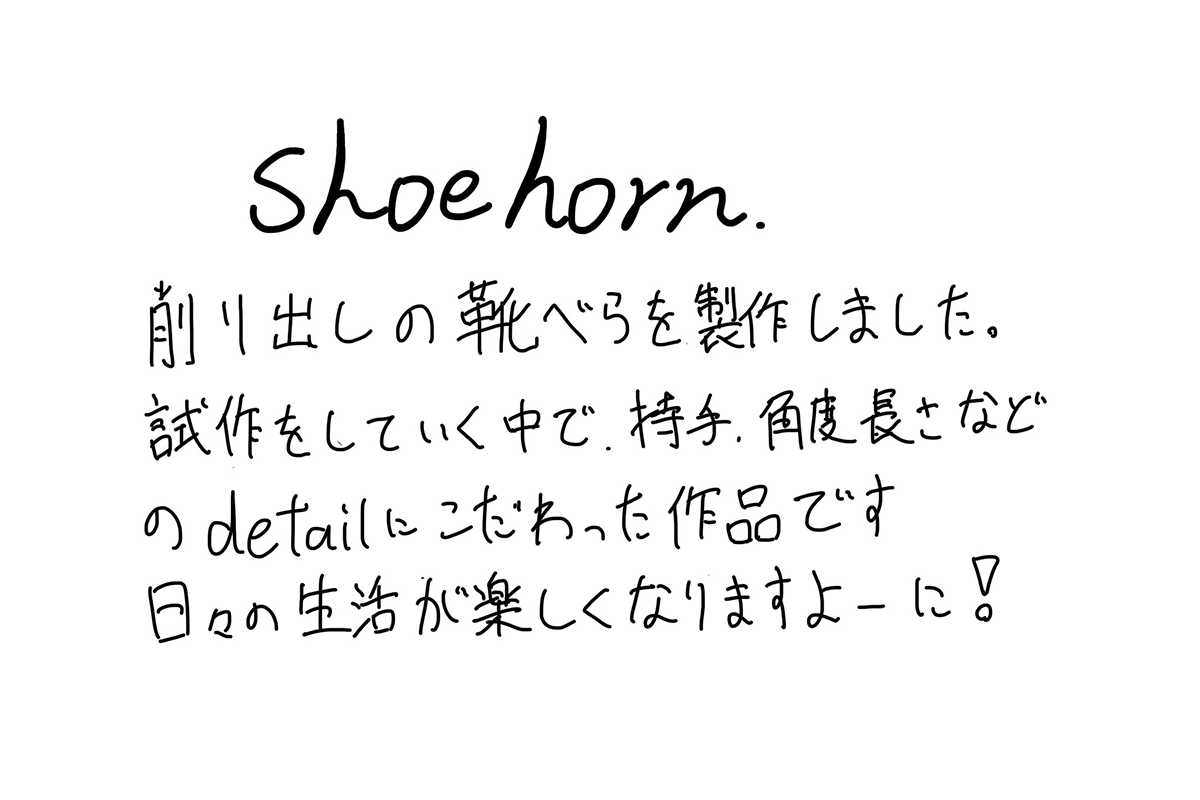 shoehorn.
削り出しの靴べらを製作しました。
試作をしていく中で.持手.角度長さなど
のdetailにこだわった作品です
日々の生活が楽しくなりますよーに!